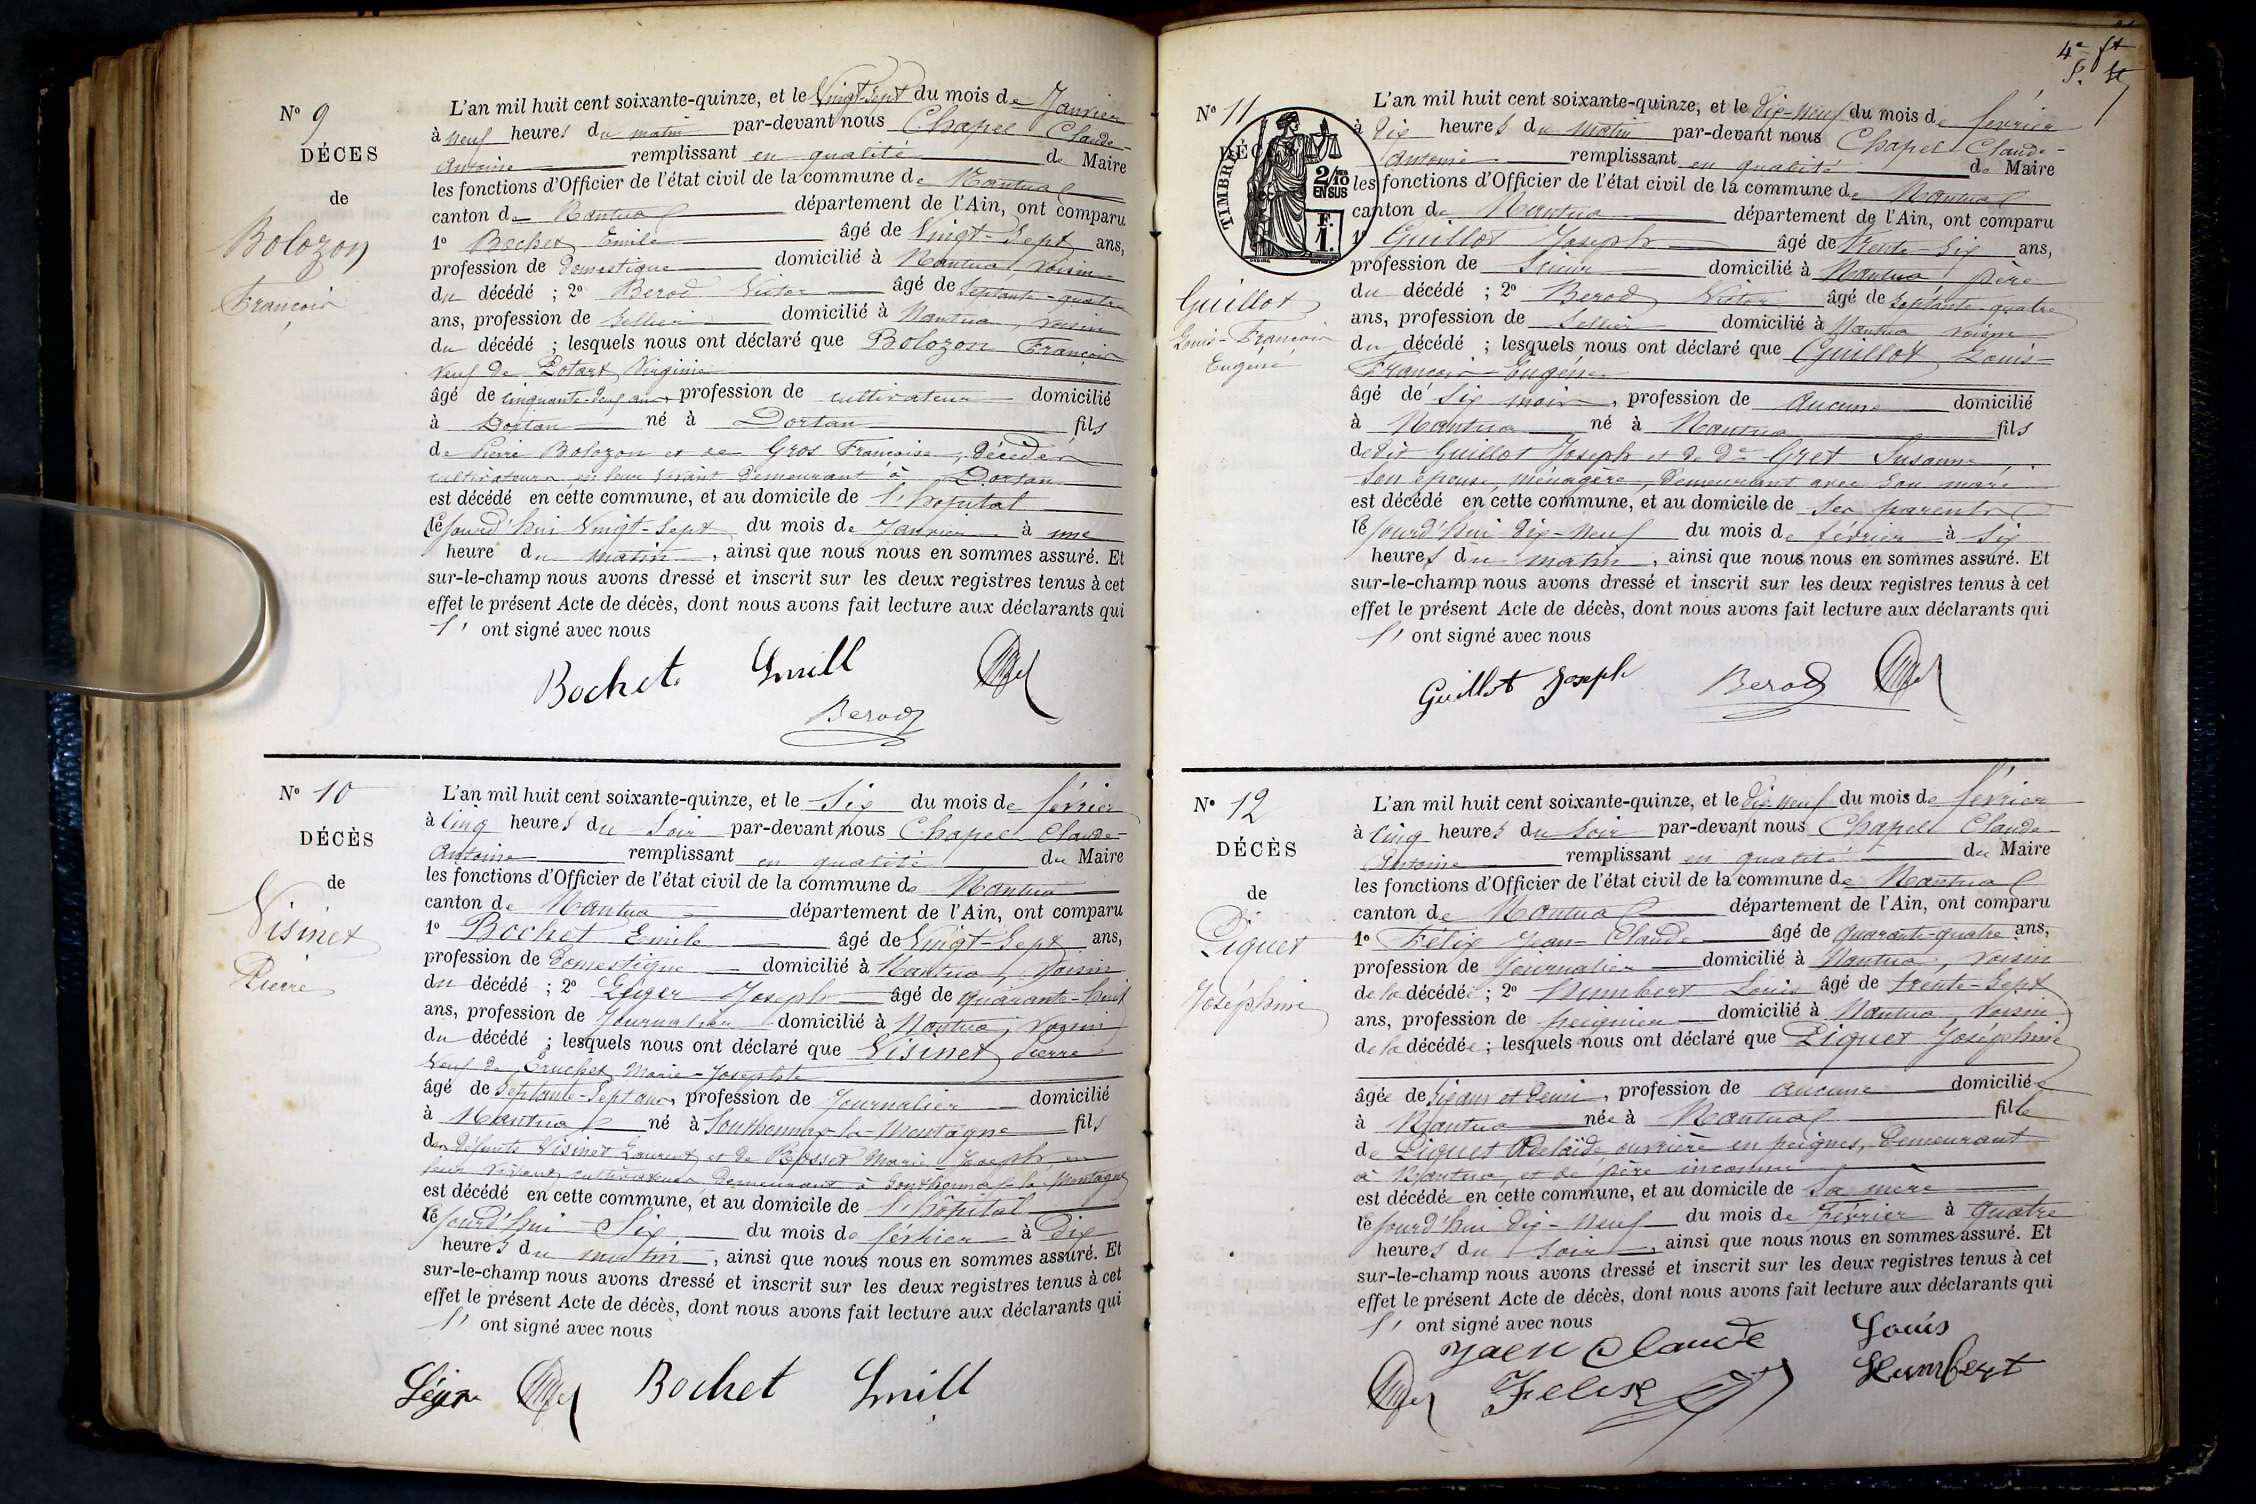 N° 9
DÉCES
de
Bolozon
François
L'an mil huit cent soixante-quinze, et le Vingt-sept du mois de Janvier
à neuf heures du matin par-devant nous Chapel Claude-
Antoine remplissant en qualité de Maire
les fonctions d'Officier de l'état civil de la commune de Nantua
canton de Nantua département de l'Ain, ont comparu
1° Bochet Emile âgé de Vingt-Sept ans,
profession de domestique domicilié à Nantua, Voisin
du décédé ; 2° Berod Victor âgé de Septante-quatre
ans, profession de Sellier domicilié à Nantua, voisin
du décédé ; lesquels nous ont déclaré que Bolozon François
Veuf de Virginie
âgé de cinquante-neuf ans, profession de cultivateur domicilié
à Dortan né à Dortan fils
de Pierre Bolozon et de Gros Françoise, décédés
cultivateurs en leur vivant demeurant à Dortan
est décédé en cette commune, et au domicile de l'hôpital
le jourd'hui Vingt-Sept du mois de Janvier à une
heure du matin, ainsi que nous nous en sommes assuré. Et
sur-le-champ nous avons dressé et inscrit sur les deux registres tenus à cet
effet le présent Acte de décès, dont nous avons fait lecture aux déclarants qui
l' ont signé avec nous
Bochet Emill
Berod
N° 10
DÉCÈS
de
Visinet
Pierre
L'an mil huit cent soixante-quinze, et le Six du mois de février
à Cinq heures du Soir par-devant nous Chapel Claude-
Antoine remplissant en qualité du Maire
les fonctions d'Officier de l'état civil de la commune de Nantua
canton de Nantua département de l'Ain, ont comparu
1° Bochet Emile âgé de Vingt-Sept ans,
profession de domestique domicilié à Nantua, Voisin
du décédé ; 2° Léger Joseph âgé de quarante-huit
ans, profession de Journalier domicilié à Nantua, Voisin
du décédé ; lesquels nous ont déclaré que Visinet Pierre
Veuf de Marie-Josephte
âgé de Septante-Sept ans, profession de Journalier domicilié
à Nantua né à Sonthonnax-la-Montagne fils
des défunts Visinet Laurent et de Rosset Marie-Joseph, en
leur vivant cultivateurs demeurant à Sonthonnax-la-Montagne
est décédé en cette commune, et au domicile de l'hôpital
le jourd'hui Six du mois de février à Dix
heures du matin, ainsi que nous nous en sommes assuré. Et
sur-le-champ nous avons dressé et inscrit sur les deux registres tenus à cet
effet le présent Acte de décès, dont nous avons fait lecture aux déclarants qui
l' ont signé avec nous
Léger Bochet Emill
4e ft
N° 11
DÉC
TIMBRE
2/10 EN SUS
F. 1.
Guillot
Louis-François
Eugène
L'an mil huit cent soixante-quinze, et le dix-neuf du mois de février
à dix heures du matin par-devant nous Chapel Claude-
Antoine remplissant en qualité de Maire
les fonctions d'Officier de l'état civil de la commune de Nantua
canton de Nantua département de l'Ain, ont comparu
1° Guillot Joseph âgé de Trente-Six ans,
profession de Scieur domicilié à Nantua père
du décédé ; 2° Berod Victor âgé de Septante-quatre
ans, profession de Sellier domicilié à Nantua voisin
du décédé ; lesquels nous ont déclaré que Guillot Louis-
François-Eugène
âgé de Six mois, profession de aucune domicilié
à Nantua né à Nantua fils
dedit Guillot Joseph et de De Gret Susanne
son épouse, ménagère, demeurant avec son mari
est décédé en cette commune, et au domicile de ses parents
le jourd'hui dix-neuf du mois de février à Six
heures du matin, ainsi que nous nous en sommes assuré. Et
sur-le-champ nous avons dressé et inscrit sur les deux registres tenus à cet
effet le présent Acte de décès, dont nous avons fait lecture aux déclarants qui
l' ont signé avec nous
Guillot Joseph Berod
N° 12
DÉCÈS
de
Piquet
Joséphine
L'an mil huit cent soixante-quinze, et le dix-neuf du mois de février
à Cinq heures du Soir par-devant nous Chapel Claude-
Antoine remplissant en qualité du Maire
les fonctions d'Officier de l'état civil de la commune de Nantua
canton de Nantua département de l'Ain, ont comparu
1° Félix Jean-Claude âgé de quarante-quatre ans,
profession de Journalier domicilié à Nantua, voisin
de la décédée ; 2° Humbert Louis âgé de trente-Sept
ans, profession de peignier domicilié à Nantua, voisin
de la décédée ; lesquels nous ont déclaré que Piquet Joséphine
âgée de Six ans et demi, profession de aucune domiciliée
à Nantua née à Nantua fille
de Piquet Adelaïde, ouvrière en peignes, demeurant
à Nantua, et de père inconnu
est décédée en cette commune, et au domicile de Sa mère
le jourd'hui dix-neuf du mois de février à quatre
heures du Soir, ainsi que nous nous en sommes assuré. Et
sur-le-champ nous avons dressé et inscrit sur les deux registres tenus à cet
effet le présent Acte de décès, dont nous avons fait lecture aux déclarants qui
l' ont signé avec nous
Jaen Claude Louis
Felix Humbert